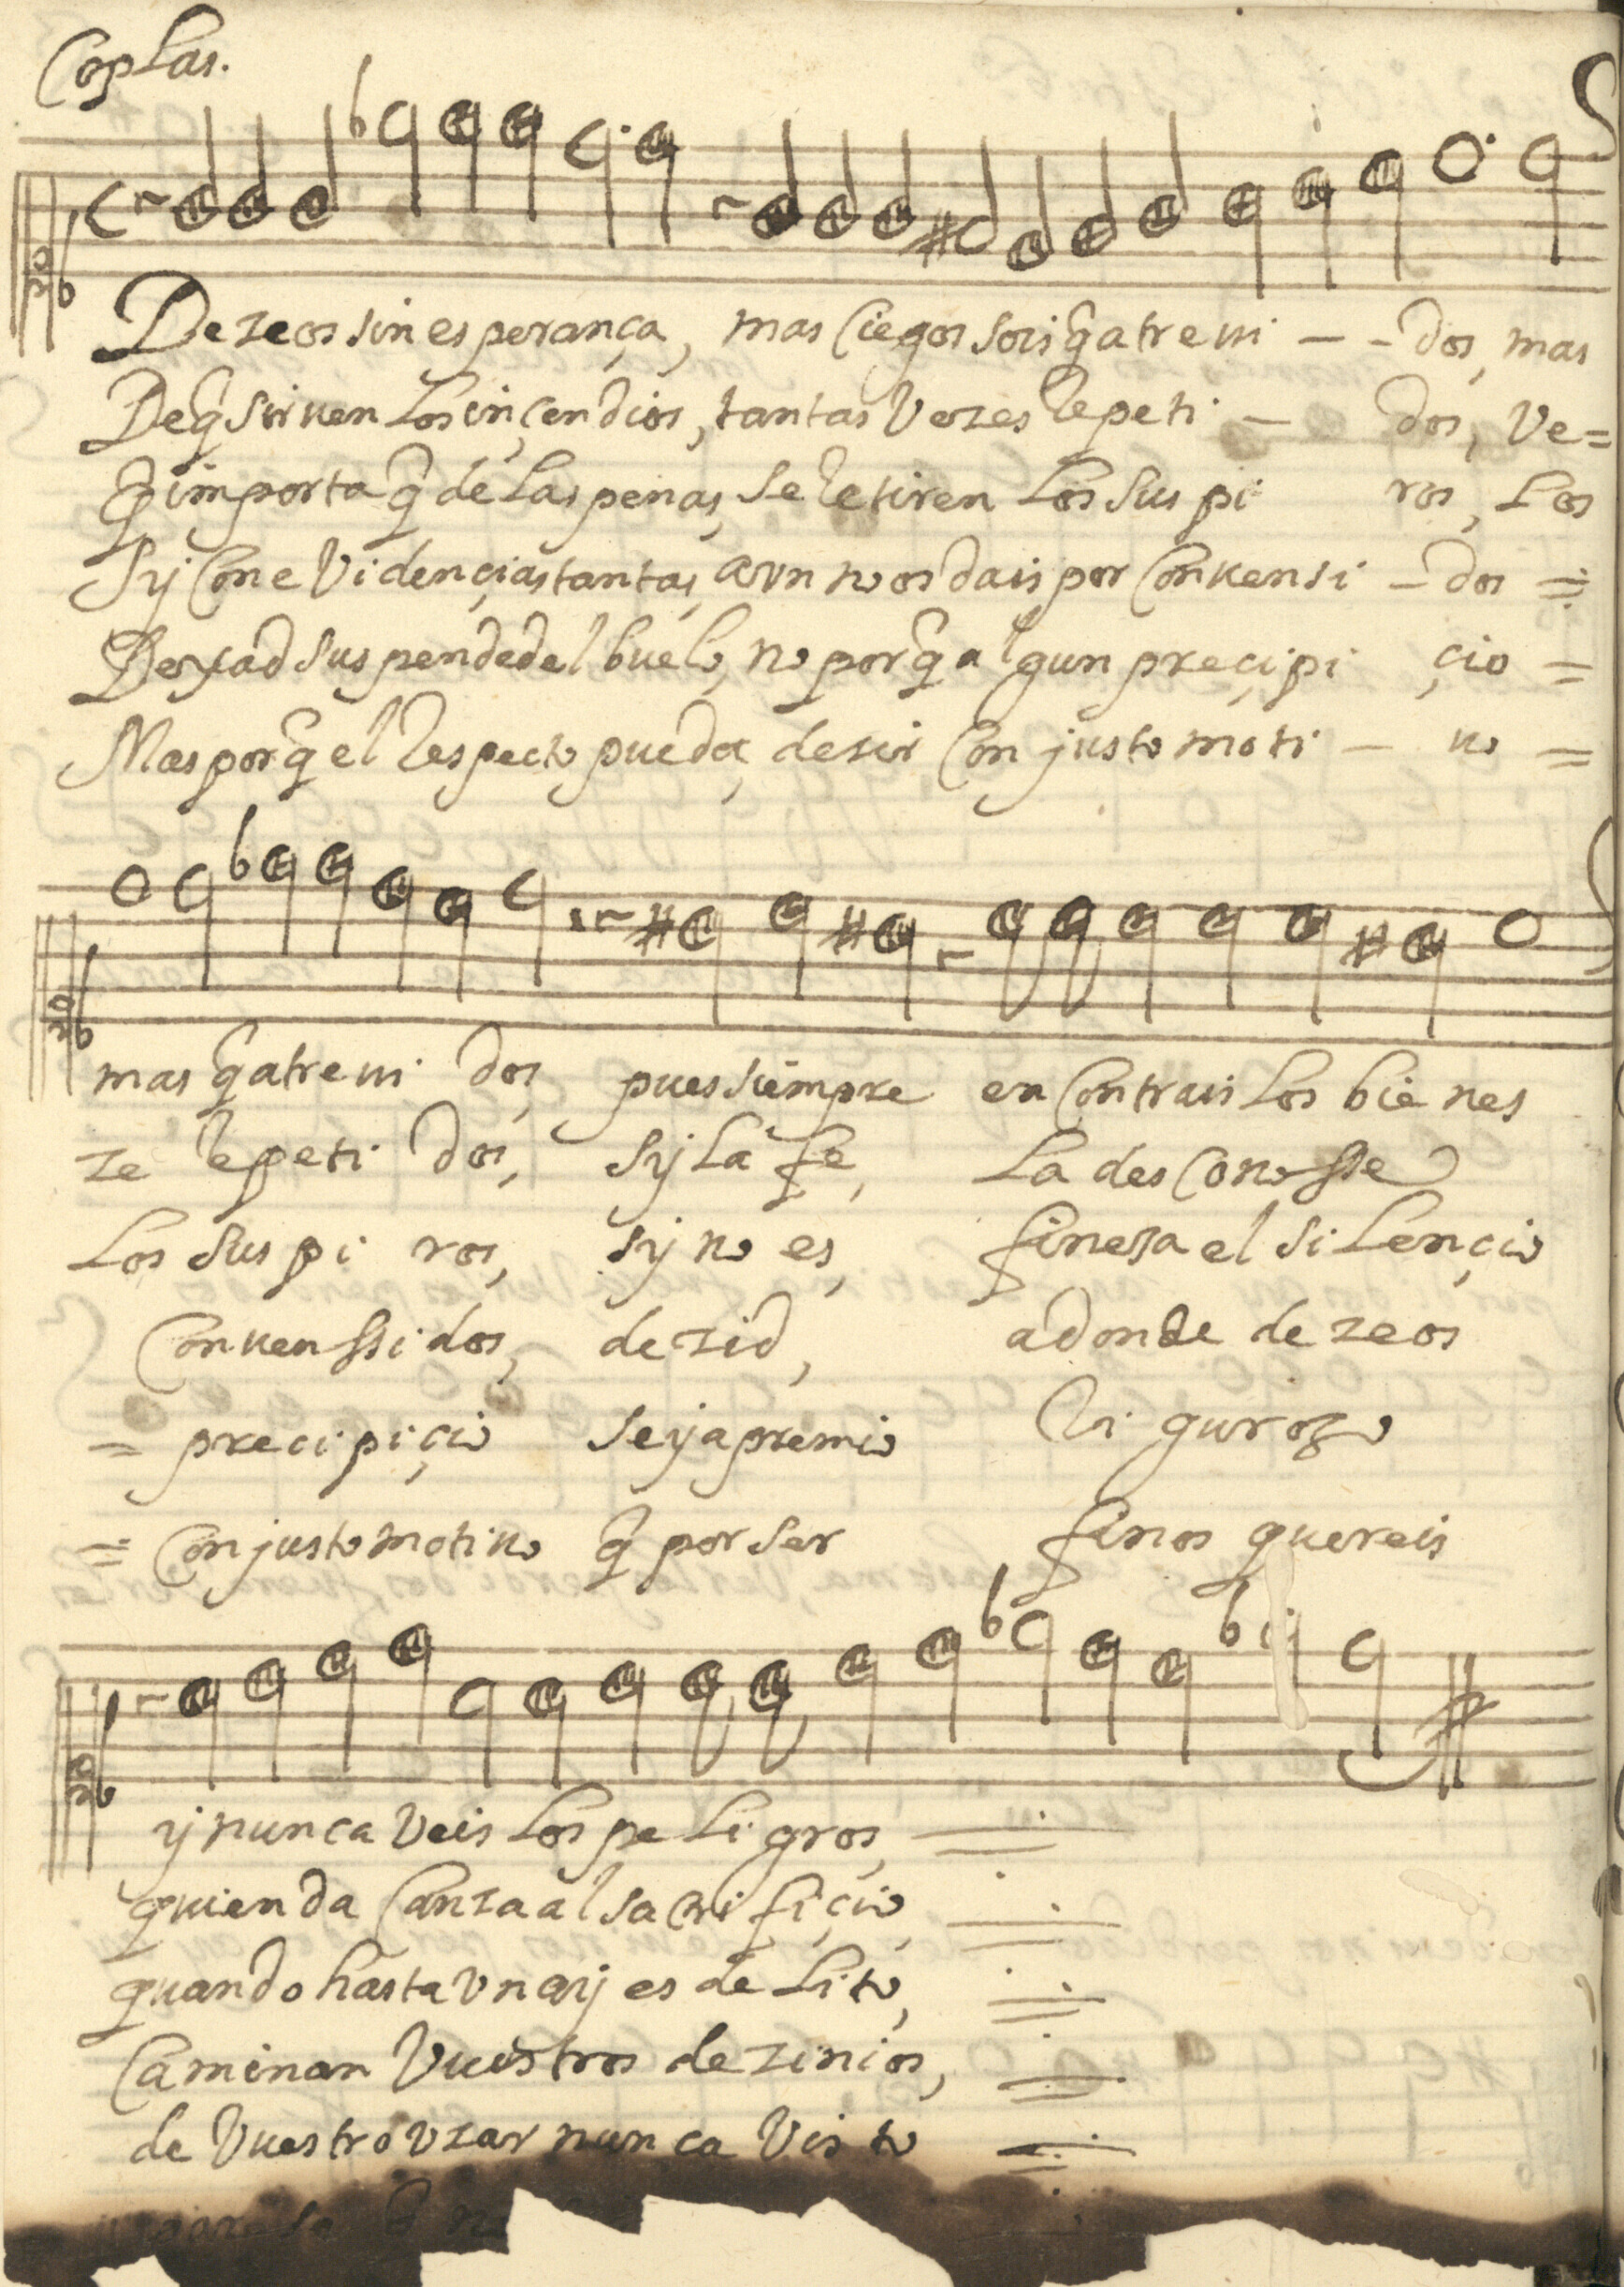 Coplas.
Dezeos sin esperança, mas Ciegos sois q̃ atreui - - dos, mas
De q̃ siruen Los inçendios, tantas Vezes repeti - dos, Ve=
q̃ importa q̃ de Las penas, se retiren Los suspi ros, Los
Sy Con eVidençias tantas, aun no os dais por Conuensi - dos =
Dexad suspended el buelo, no porq̃ algun preçipi çio =
Mas porq̃ el respecto pueda, desir Con justo moti - uo =
mas q̃ atreui dos, pues siempre encontrais Los bienes
ze repeti dos, sy La fe, La des Conosse
Los suspi ros, sy no es, finesa el silençio
Conuenssidos, dezid, adonde dezeos
= precipiçio seya premio Rigurozo
= Con justo motiuo q̃ por ser finos quereis
y nunca Veis Los peligros,
quien da Canza al sacrifiçio,
quando hasta Vn ay es delito,
Caminan Vuestros dezinios,
de Vuestro Vzar nunca Visto